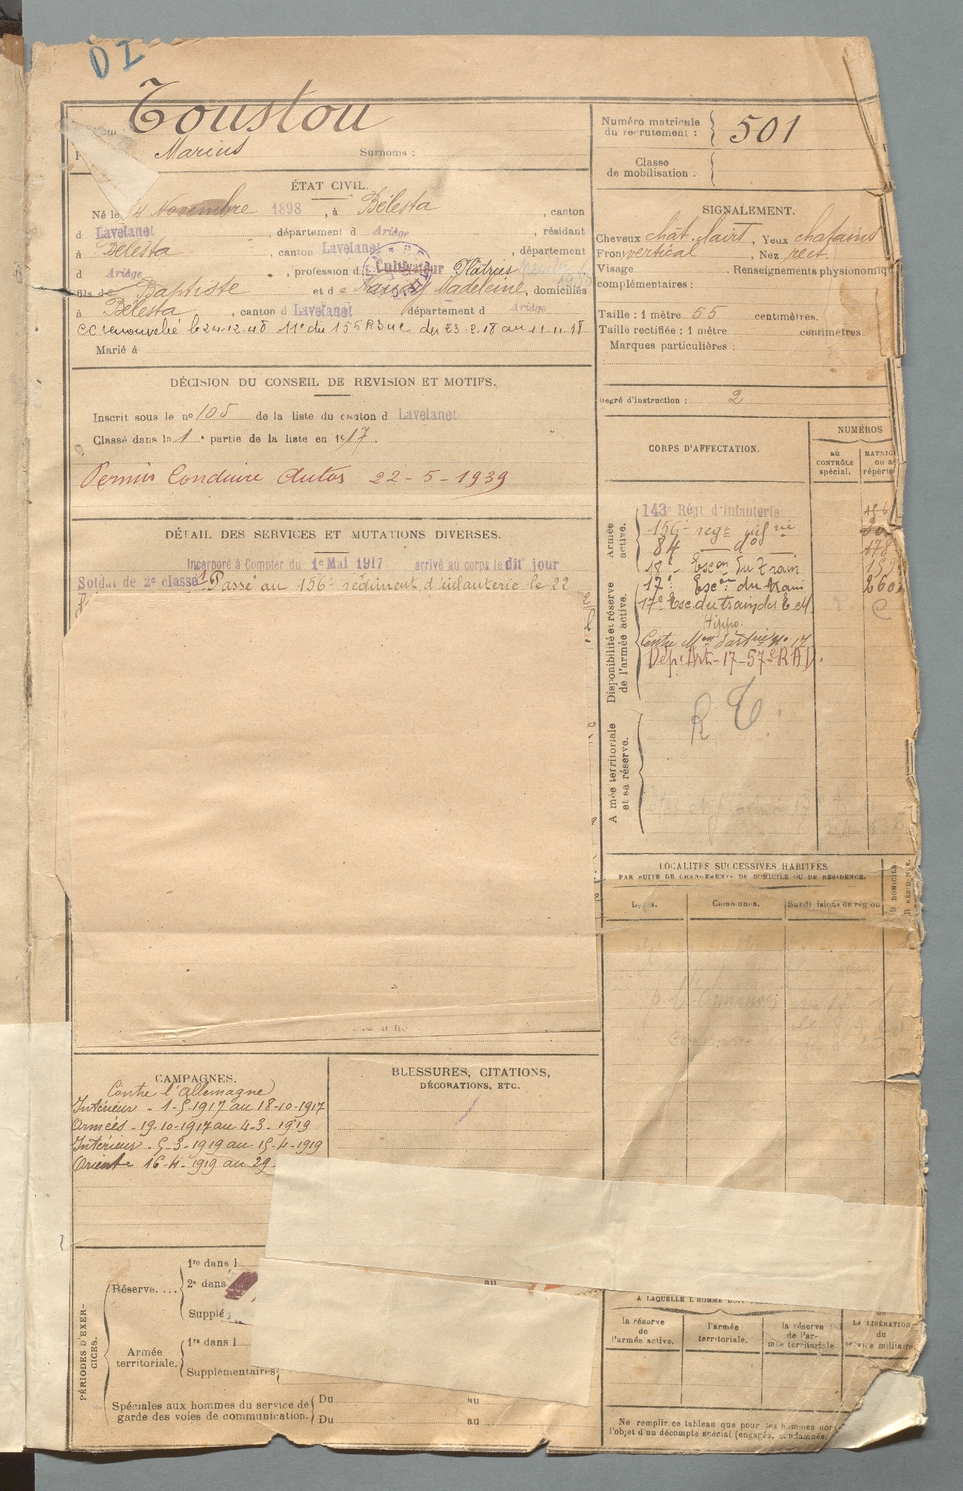 Toustou
Marius Surnoms :
Numéro matricule du recrutement : 501
Classe de mobilisation :
ÉTAT CIVIL.
Né le 14 Novembre 1898, à Bélesta, canton
d Lavelanet, département d Ariège, résidant
à Bélesta, canton Lavelanet, département
d Ariège, profession d Cultivateur Plâtrier
fils de Baptiste et de Madeleine, domiciliés
à Bélesta, canton d Lavelanet département d Ariège
Marié à
SIGNALEMENT.
Cheveux chât. , Yeux
Front vertical, Nez rect.
Visage Renseignements physionomiq
complémentaires :
Taille : 1 mètre 55 centimètres.
Taille rectifiée : 1 mètre centimètres.
Marques particulières :
Degré d'instruction : 2
DÉCISION DU CONSEIL DE REVISION ET MOTIFS.
Inscrit sous le no 105 de la liste du canton d Lavelanet
Classé dans la 1e partie de la liste en 1917
Permis Conduire Autos 22-5-1939
DÉTAIL DES SERVICES ET MUTATIONS DIVERSES.
Incorporé à Compter du 1er Mai 1917 arrivé au corps le dit jour
Soldat de 2e classe Passé au 156e régiment d'infanterie le 22
CORPS D'AFFECTATION.
NUMÉROS
AU CONTRÔLE spécial.
Armée active.
143e Régt d'infanterie
156e regt
84 do
18e Escon du Train
17e Escon du train
17e Esc. du train des E.M.
Hippo.
Dép. Art-17-57e R.A.D.
Disponibilité et réserve de l'armée active.
R T
Armée territoriale et sa réserve.
LOCALITÉS SUCCESSIVES HABITÉES
PAR SUITE DE CHANGEMENTS DE DOMICILE OU DE RÉSIDENCE.
Dates. Communes. Subdivisions de région
CAMPAGNES.
Contre l'Allemagne
Intérieur - 1-5-1917 au 18-10-1917
Armées - 19-10-1917 au 4-3-1919
Intérieur - 5-3-1919 au 15-4-1919
Orient 16-4-1919 au 29-
BLESSURES, CITATIONS,
DÉCORATIONS, ETC.
PÉRIODES D'EXERCICES.
Réserve....
1re dans l
2e dans
Supplé
au
Armée territoriale.
1re dans l
Supplémentaires
Spéciales aux hommes du service de garde des voies de communication.
Du au
Du au
la réserve de l'armée active.
l'armée territoriale.
la réserve de l'armée territoriale
LA LIBÉRATION du service militaire
Ne remplir ce tableau que pour les hommes
l'objet d'un décompte spécial (engagés, condamnés,